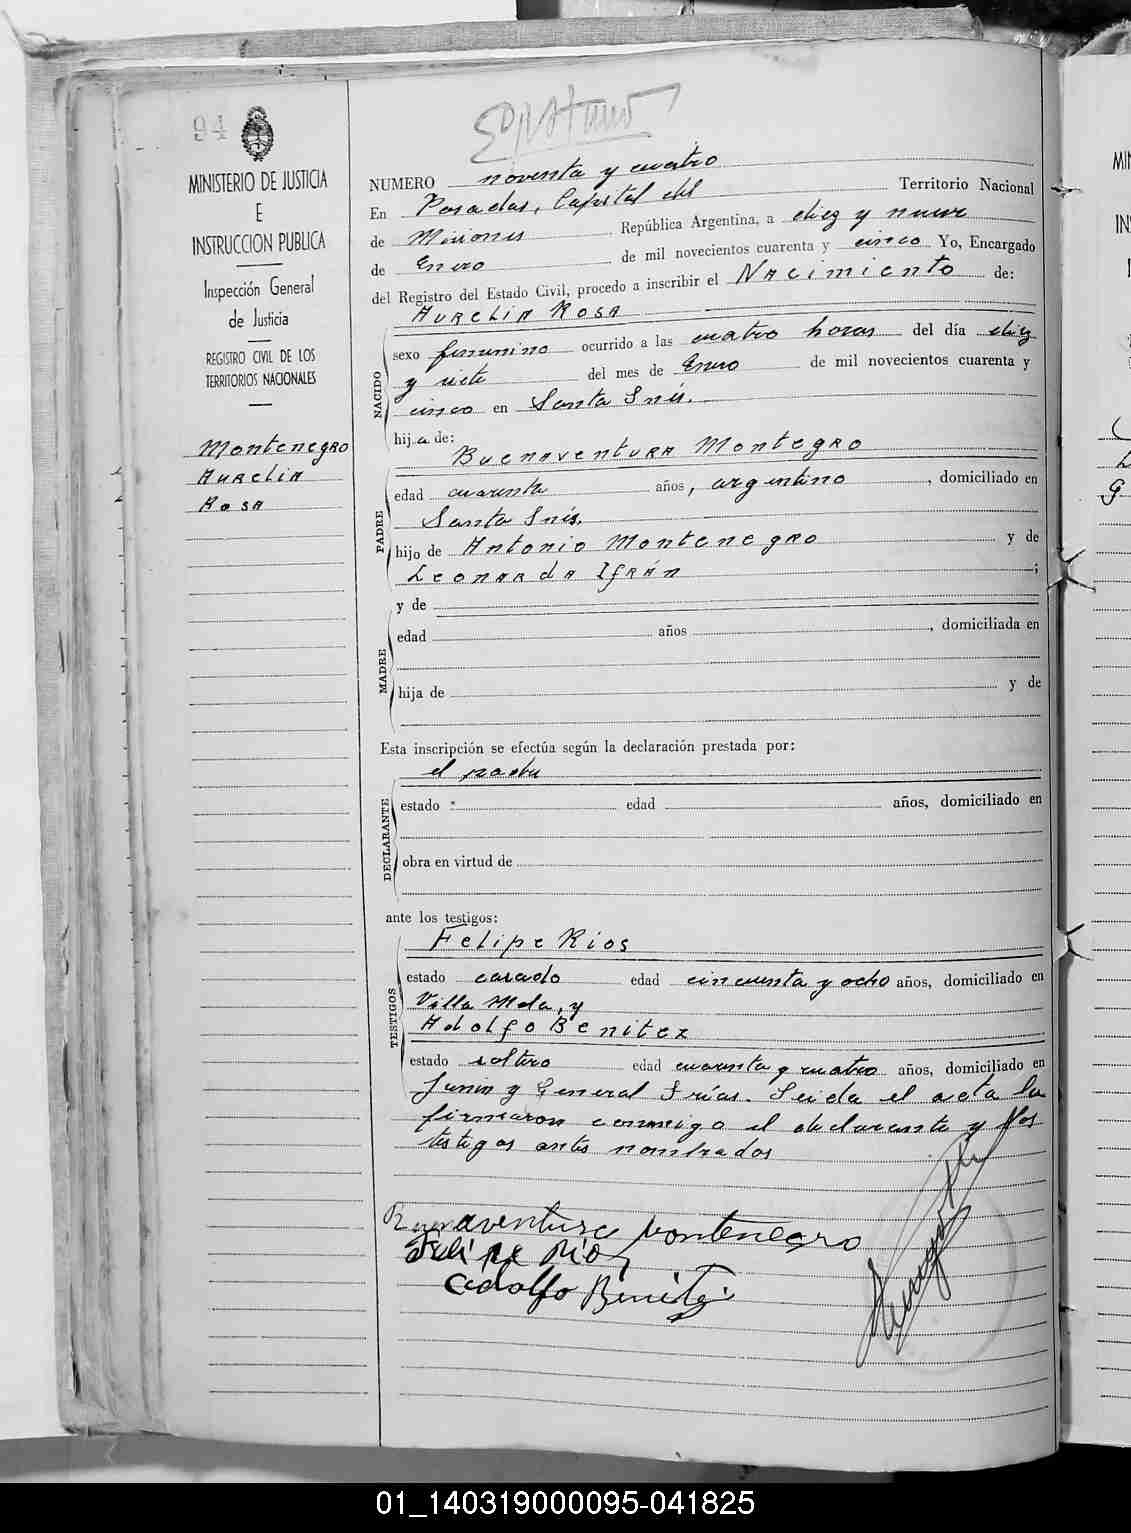 94
MINISTERIO DE JUSTICIA
E
INSTRUCCION PUBLICA
Inspección General
de Justicia
REGISTRO CIVIL DE LOS
TERRITORIOS NACIONALES
Montenegro
Aurelia
Rosa
NUMERO noventa y cuatro
En Posadas, Capital del Territorio Nacional
de Misiones, República Argentina, a diez y nueve
de Enero de mil novecientos cuarenta y cinco Yo, Encargado
del Registro del Estado Civil, procedo a inscribir el Nacimiento de:
Aurelia Rosa
NACIDO
sexo femenino ocurrido a las cuatro horas del día diez
y siete del mes de Enero de mil novecientos cuarenta y
cinco en Santa Inés.
hija de:
Buenaventura Montegro
PADRE
edad cuarenta años, argentino, domiciliado en
Santa Inés.
hijo de Antonio Montenegro y de
Leonarda Ifrán;
y de
MADRE
edad años, domiciliada en
hija de y de
Esta inscripción se efectúa según la declaración prestada por:
el padre
DECLARANTE
estado edad años, domiciliado en
obra en virtud de
ante los testigos:
Felipe Rios
TESTIGOS
estado casado edad cincuenta y ocho años, domiciliado en
Villa y
Adolfo Benitez
estado soltero edad cuarenta y cuatro años, domiciliado en
Junin y General Frías. Leida el acta la
firmaron conmigo el declarante y los
testigos antes nombrados
Buenaventura Montenegro
Felipe Rios
Adolfo Benitez
MIN
IN
01_140319000095-041825